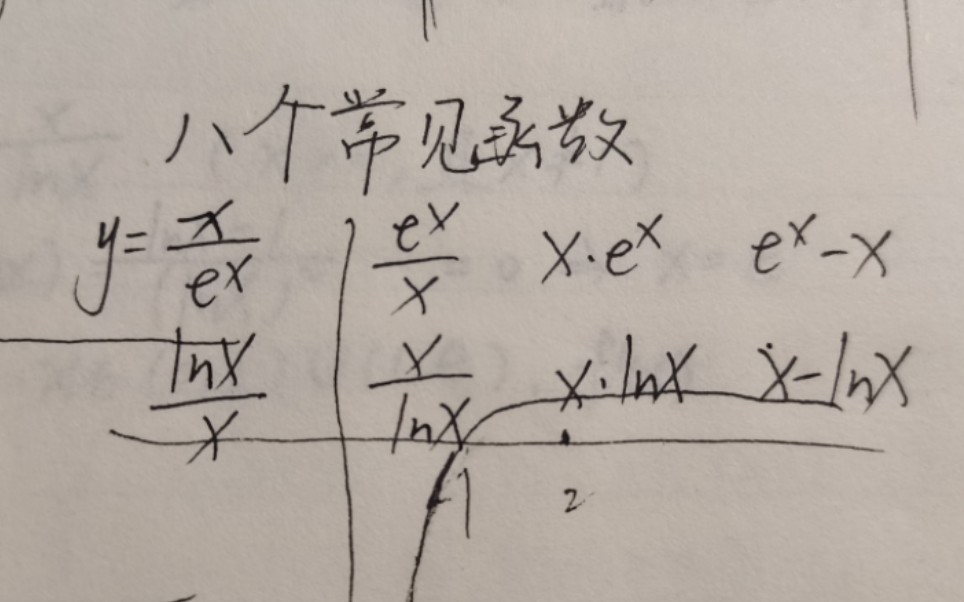 八个常见函数
y=x/e^x e^x/x x·e^x e^x-x
lnx/x x/lnx x·lnx x-lnx
1 2